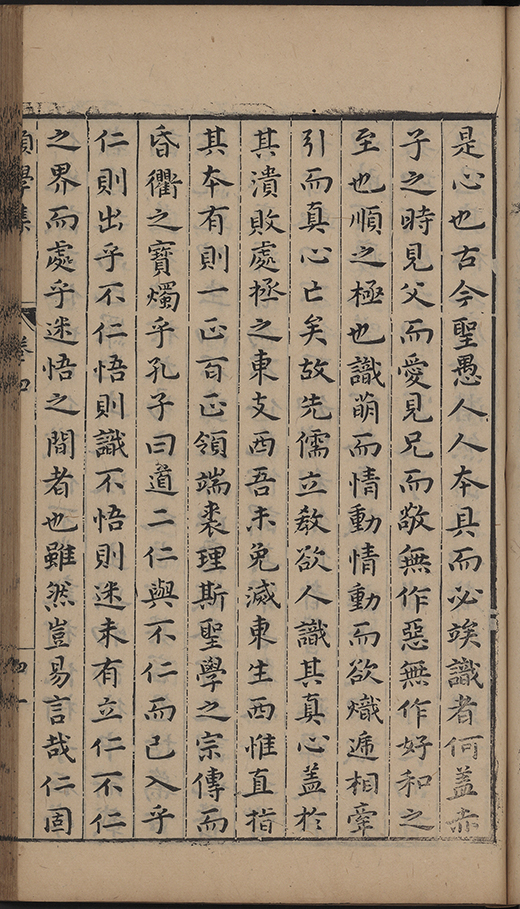 是心也古今聖愚人人本具而必竢識者何蓋赤
子之時見父而愛見兄而敬無作惡無作好和之
至也順之極也識萌而情動情動而欲熾遞相牽
引而真心亡矣故先儒立敎欲人識其真心蓋於
其潰敗處拯之東支西吾未免滅東生西惟直指
其本有則一正百正領端裘理斯聖學之宗傳而
昏衢之寶燭乎孔子曰道二仁與不仁而已入乎
仁則出乎不仁悟則識不悟則迷未有立仁不仁
之界而處乎迷悟之間者也雖然豈易言哉仁固
學集
卷四
四一